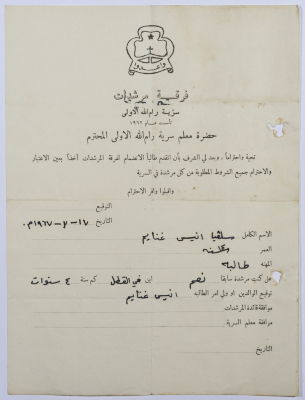 واعدوا
فرقة مرشدات
سرية رام الله الاولى
تأسست عام ١٩٢٢
حضرة معلم سرية رام الله الاولى المحترم
تحية واحتراماً ، وبعد لي الشرف بأن اتقدم طالباً الانضمام لفرقة المرشدات آخذاً بعين الاعتبار
والاحترام جميع الشروط المطلوبة من كل مرشدة في السرية
واقبلوا وافر الاحترام
التوقيع
التاريخ ١٧-٧-١٩٦٧م
الاسم الكامل سلفيا انيس غنايم
العمر سنه
المهنه طالبه
هل كنت مرشدة سابقا نعم اين في القطر كم سنة ٤ سنوات
توقيع الوالدين او ولي امر الطالبه انيس غنايم
موافقة قائدة المرشدات
موافقة معلم السرية
التاريخ